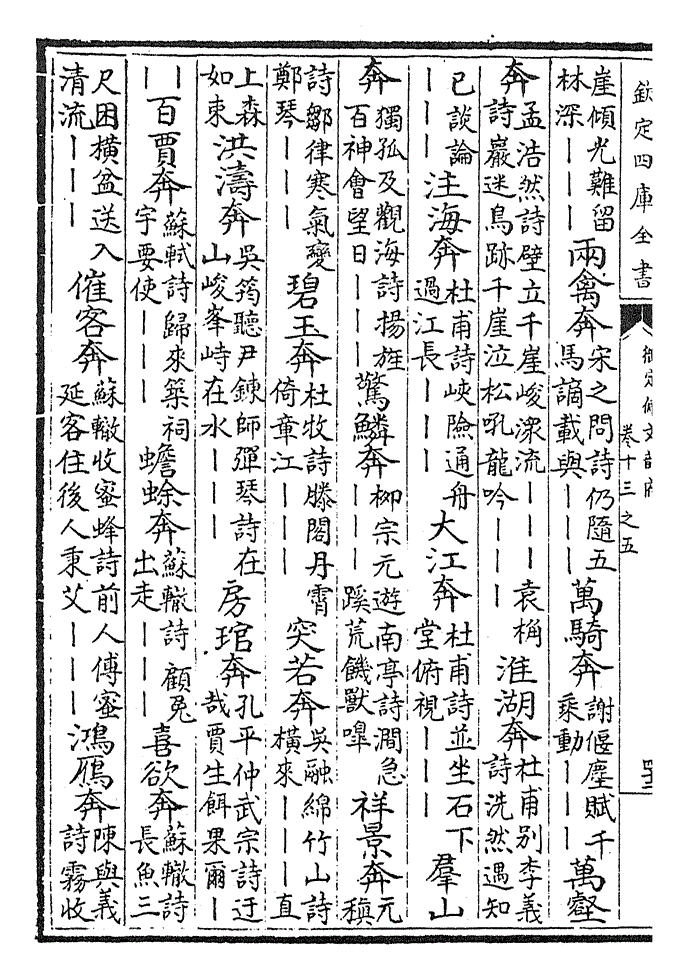 欽定四庫全書
御定佩文韻府
卷十三之五
崖傾光難留林深｜｜｜兩禽奔宋之問詩仍隨五馬謫載與｜｜｜萬騎奔謝偃塵賦千乘動｜｜｜萬壑
奔孟浩然詩壁立千崖峻潨流｜｜｜袁桷詩巖迷鳥跡千崖泣松吼龍吟｜｜｜淮湖奔杜甫別李義詩洗然遇知
已談論｜｜｜注海奔杜甫詩峽險通舟過江長｜｜｜大江奔杜甫詩並坐石下堂俯視｜｜｜羣山
奔獨孤及觀海詩揚旌百神會望日｜｜｜驚鱗奔柳宗元遊南亭詩澗急｜｜｜蹊荒饑獸嘷祥景奔元稹
詩鄒律寒氣變鄭琴｜｜｜碧玉奔杜牧詩滕閣丹霄倚章江｜｜｜突若奔吳融綿竹山詩橫來｜｜｜直
上森如束洪濤奔吳筠聽尹鍊師彈琴詩在山峻峯峙在水｜｜｜房琯奔孔平仲武宗詩迂哉賈生餌果爾｜
｜｜百賈奔蘇軾詩歸來築祠宇要使｜｜｜蟾蜍奔蘇轍詩顧兔出走｜｜｜喜欲奔蘇轍詩長魚三
尺困橫盆送入清流｜｜｜催客奔蘇轍收蜜蜂詩前人傅蜜延客住後人秉艾｜｜｜鴻鴈奔陳與義詩霧收